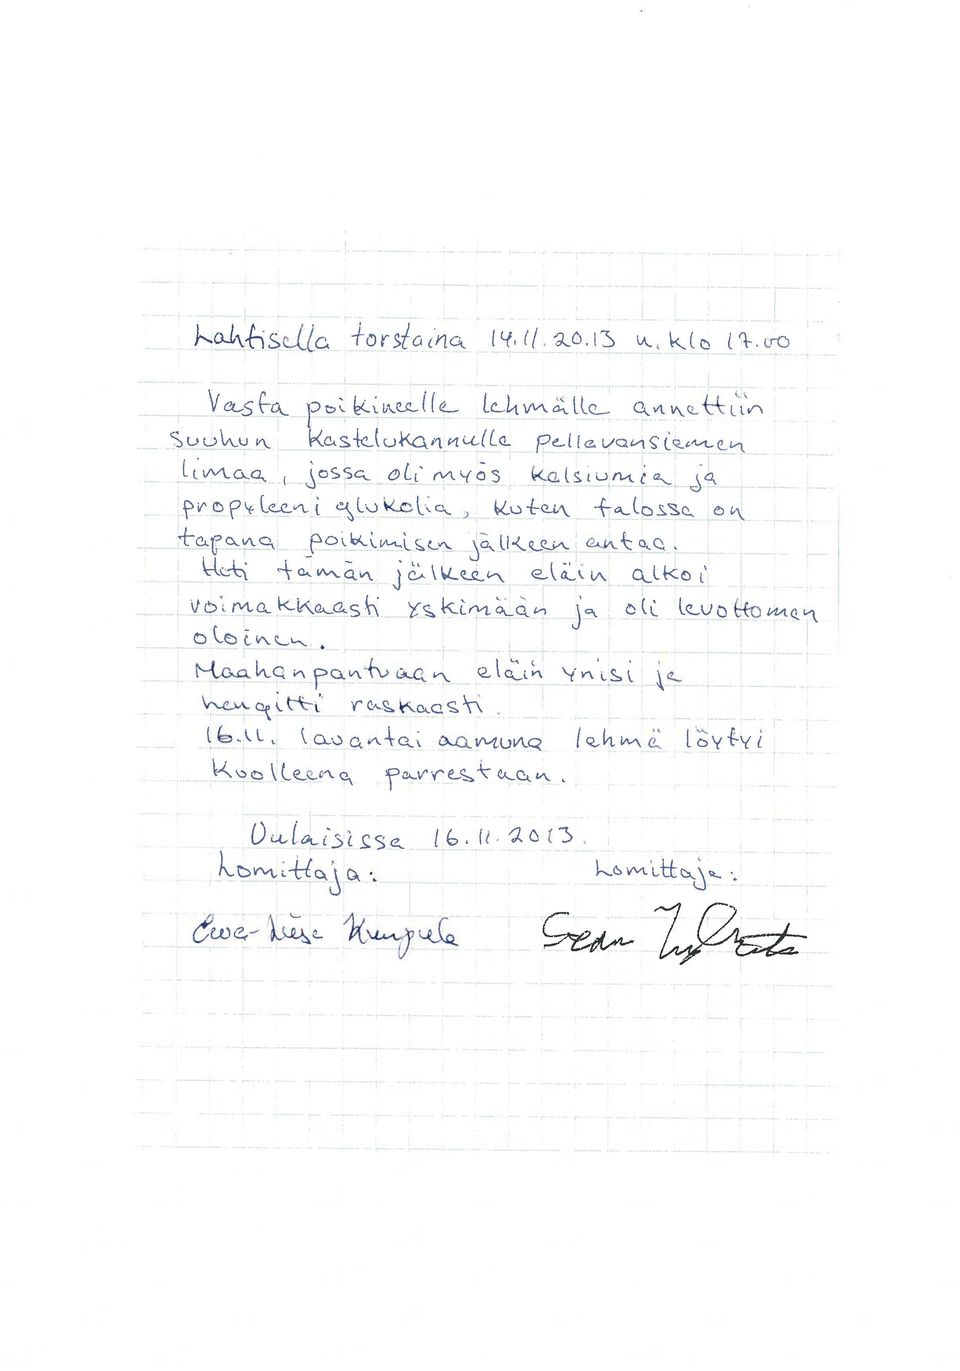 Lahtisella torstaina 14.11.20.13 n. klo 17.00
Vasta poikineelle lehmälle annettiin
suuhun kastelukannulla pellavansiemen
limaa, jossa oli myös kalsiumia ja
propyleeni glukolia, kuten talossa on
tapana poikimisen jälkeen antaa.
Heti tämän jälkeen eläin alkoi
voimakkaasti yskimään ja oli levottoman
oloinen.
Maahanpantuaan eläin ynisi ja
hengitti raskaasti.
16.11. lauantai aamuna lehmä löytyi
kuolleena parrestaan.
Oulaisissa 16.11.2013.
Lomittaja: Lomittaja:
Sean